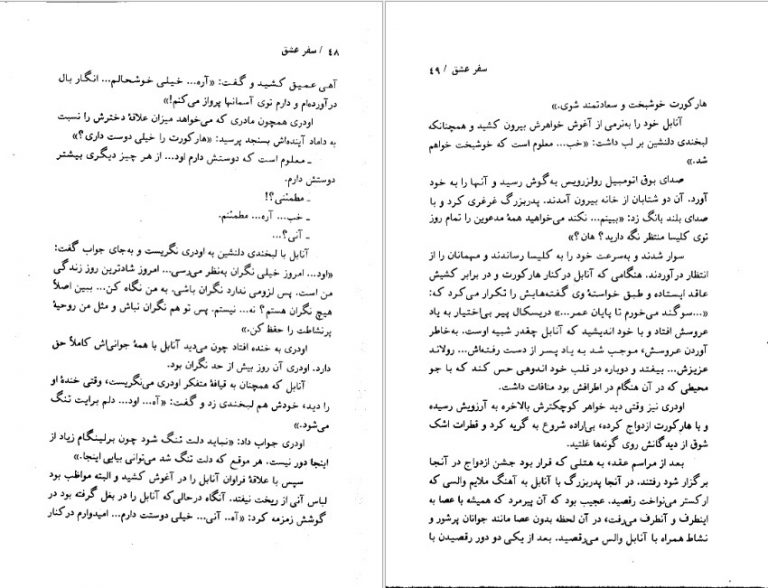 ۴۸ / سفر عشق
آهی عمیق کشید و گفت: «آره... خیلی خوشحالم... انگار بال
درآورده‌ام و دارم توی آسمانها پرواز می‌کنم!»
اودری همچون مادری که می‌خواهد میزان علاقهٔ دخترش را نسبت
به داماد آینده‌اش بسنجد پرسید: «هارکورت را خیلی دوست داری؟»
ـ معلوم است که دوستش دارم اود... از هر چیز دیگری بیشتر
دوستش دارم.
ـ مطمئنی؟!
ـ خب... آره... مطمئنم.
ـ آنی؟...
آنابل با لبخندی دلنشین به اودری نگریست و به‌جای جواب گفت:
«اود... امروز خیلی نگران به‌نظر می‌رسی... امروز شادترین روز زندگی
من است. پس لزومی ندارد نگران باشی. به من نگاه کن... ببین اصلاً
هیچ نگران هستم؟ نه... نیستم. پس تو هم نگران نباش و مثل من روحیهٔ
پرنشاطت را حفظ کن.»
اودری به خنده افتاد چون می‌دید آنابل با همهٔ جوانی‌اش کاملاً حق
دارد. اودری آن روز بیش از حد نگران بود.
آنابل که همچنان به قیافهٔ متفکر اودری می‌نگریست، وقتی خندهٔ او
را دید، خودش هم لبخندی زد و گفت: «آه... اود... دلم برایت تنگ
می‌شود.»
اودری جواب داد: «نباید دلت تنگ شود چون برلینگام زیاد از
اینجا دور نیست. هر موقع که دلت تنگ شد می‌توانی بیایی اینجا.»
سپس با علاقهٔ فراوان آنابل را در آغوش کشید و البته مواظب بود
لباس آنی از ریخت نیفتد. آنگاه درحالی‌که آنابل را در بغل گرفته بود در
گوشش زمزمه کرد: «آه.. آنی... خیلی دوستت دارم... امیدوارم در کنار
سفر عشق / ۴۹
هارکورت خوشبخت و سعادتمند شوی.»
آنابل خود را به‌نرمی از آغوش خواهرش بیرون کشید و همچنانکه
لبخندی دلنشین بر لب داشت: «خب... معلوم است که خوشبخت خواهم
شد.»
صدای بوق اتومبیل رولزرویس به‌گوش رسید و آنها را به خود
آورد. آن دو شتابان از خانه بیرون آمدند. پدربزرگ غرغری کرد و با
صدای بلند بانگ زد: «ببینم... نکند می‌خواهید همهٔ مدعوین را تمام روز
توی کلیسا منتظر نگه دارید؟ هان؟»
سوار شدند و به‌سرعت خود را به کلیسا رساندند و مهمانان را از
انتظار درآوردند. هنگامی که آنابل در کنار هارکورت و در برابر کشیش
عاقد ایستاده و طبق خواستهٔ وی گفته‌هایش را تکرار می‌کرد که:
«...سوگند می‌خورم تا پایان عمر...» دریسکال پیر بی‌اختیار به یاد
عروسش افتاد و با خود اندیشید که آنابل چقدر شبیه اوست. به‌خاطر
آوردن عروسش، موجب شد به یاد پسر از دست رفته‌اش... رولاند
عزیزش... بیفتد و دوباره در قلب خود اندوهی حس کند که با جو
محیطی که در آن هنگام در اطرافش بود منافات داشت.
اودری نیز وقتی دید خواهر کوچکترش بالاخره به آرزویش رسیده
و با هارکورت ازدواج کرده، بی‌اراده شروع به گریه کرد و قطرات اشک
شوق از دیدگانش روی گونه‌ها غلتید.
بعد از مراسم عقد، به هتلی که قرار بود جشن ازدواج در آنجا
برگزار شود رفتند. در آنجا پدربزرگ با آنابل به آهنگ ملایم والسی که
ارکستر می‌نواخت رقصید. عجیب بود که آن پیرمرد که همیشه با عصا به
اینطرف و آنطرف می‌رفت، در آن لحظه بدون عصا مانند جوانان پرشور و
نشاط همراه با آنابل والس می‌رقصید. بعد از یکی دو دور رقصیدن با